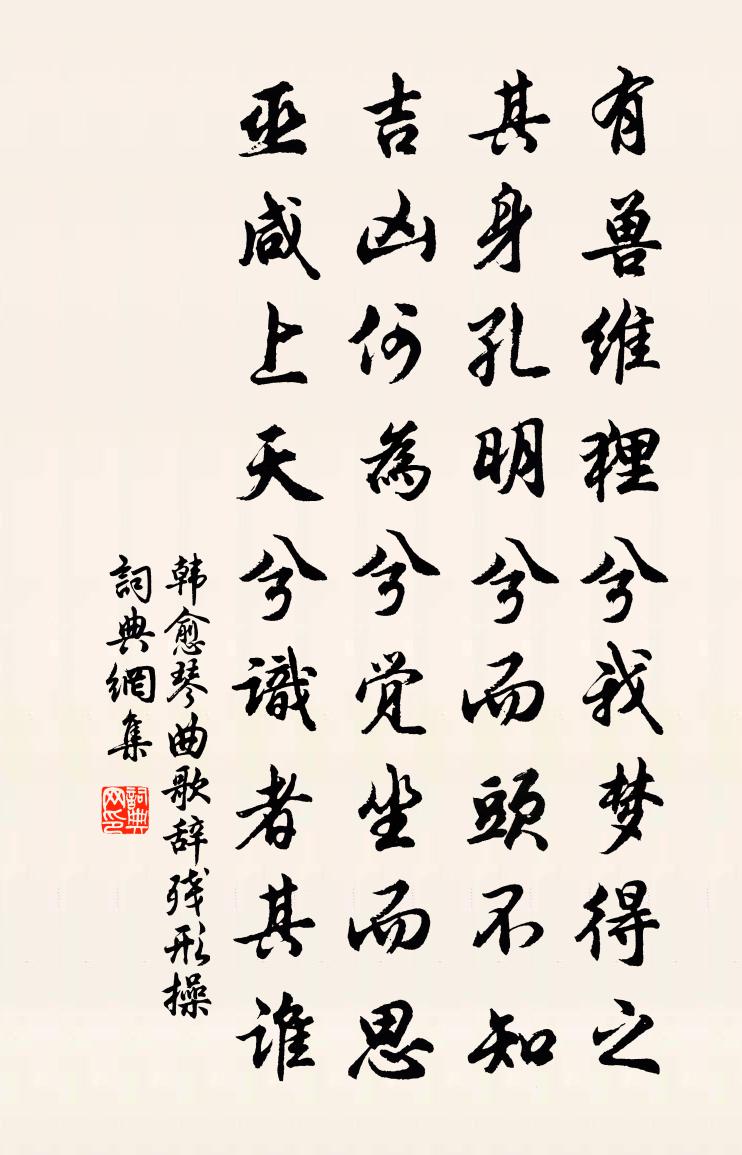 有兽维狸兮我梦得之
其身孔明兮而頭不知
吉凶何為兮觉坐而思
巫咸上天兮識者其谁
韩愈琴曲歌辞残形操
詞典網集
詞典
网印